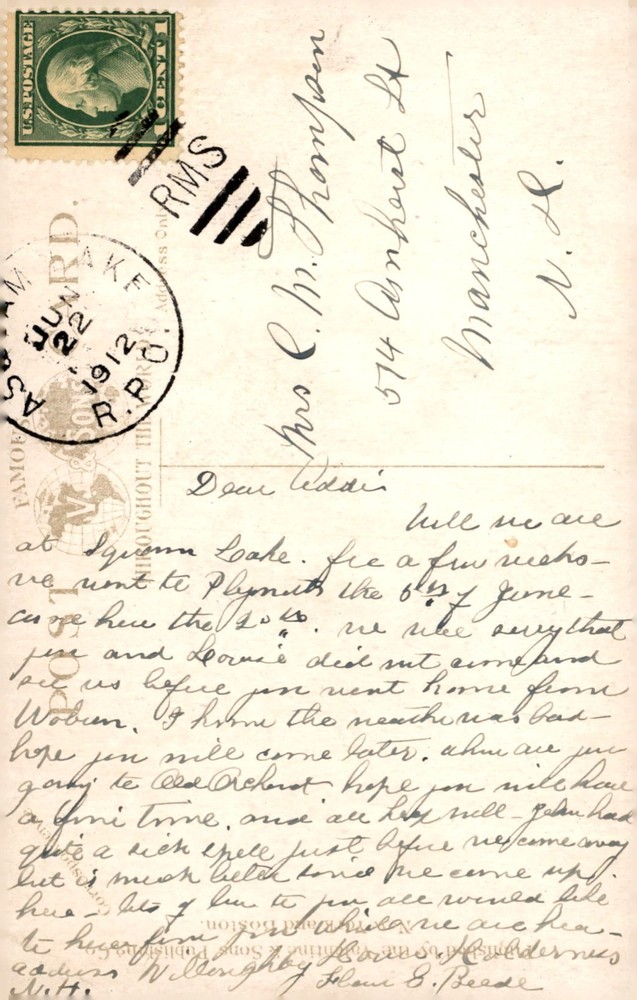 U.S. POSTAGE
RMS
LAKE
JUN
22
1912
R.P.O.
POST CARD.
FAMOUS
THROUGHOUT THE WORLD
Address Only
Mrs C. M. Thompson
514 Amherst St
Manchester
N. H.
Dear Addie
Well we are
at Squam Lake. for a few weeks-
we went to Plymouth the 5th of June-
came here the 20th. we were sorry that
you and Louise did not come and
see us before you went home from
Woburn. I know the weather was bad-
hope you will come later. when are you
going to Old Orchard hope you will have
a fine time. and all keep well- John had
quite a sick spell just before we come away
but is much better since we came up
here- lots of love to you all would like
to hear from you while we are here-
address Willoughby House Holderness
N.H. E. Beede